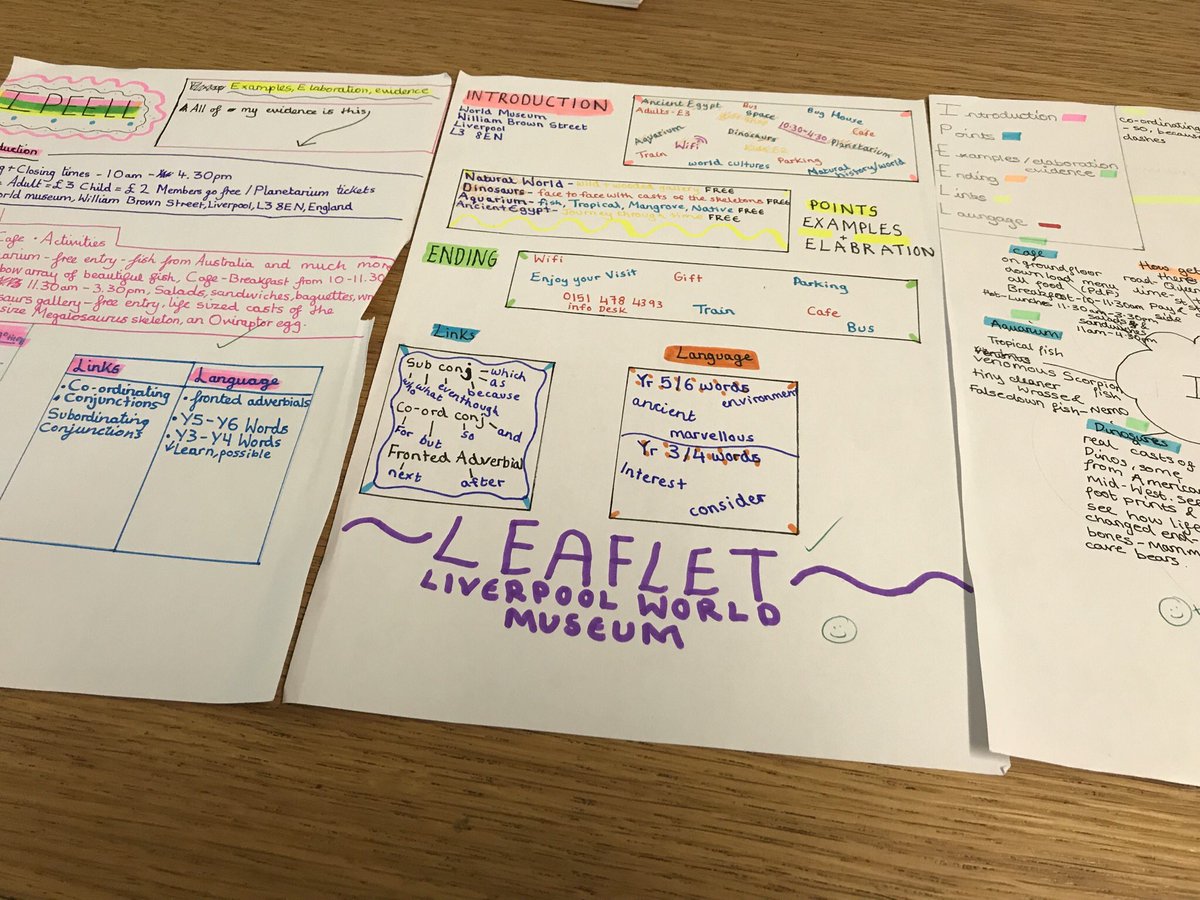 I PEELL
Examples, Elaboration, evidence
All of my evidence is this,
+ Closing times - 10am - 4.30pm
Adult = £3 Child = £2 Members go free / Planetarium tickets
World museum, William Brown Street, Liverpool, L3 8EN, England
Cafe • Activities
- free entry - fish from Australia and much more
array of beautiful fish, Cafe - Breakfast from 10-11.30
11.30am - 3.30pm, Salads, sandwiches, baguettes,
gallery - free entry, life sized casts of the
size Megalosaurus skeleton, an Oviraptor egg.
Links
• Co-ordinating
• Conjunctions
Subordinating
Conjunctions
Language
• fronted adverbials
• Y5-Y6 Words
• Y3-Y4 Words
Learn, possible
INTRODUCTION
World Museum
William Brown Street
Liverpool
L3 8EN
Ancient Egypt
Bus
Bug House
Adults - £3
Space
10:30-4:30
Cafe
Aquarium
Wifi
Dinosaurs
Planetarium
Train
world cultures
Parking
Natural history/world
Natural World - wild + wooded gallery FREE
Dinosaurs - face to face with casts of the skeletons FREE
Aquarium - fish, Tropical, Mangrove, Native FREE
Ancient Egypt - Journey through time FREE
POINTS
EXAMPLES
+
ELABRATION
ENDING
Wifi
Enjoy your Visit
Gift
Parking
0151 478 4393
info Desk
Train
Cafe
Bus
Links
Sub conj - which
as
because
eventhough
what
who
Co-ord conj - and
For
but
so
Fronted Adverbial
next
after
Language
Yr 5/6 words
environment
ancient
marvellous
Yr 3/4 words
Interest
consider
LEAFLET
LIVERPOOL WORLD
MUSEUM
Introduction
Points
Examples/elaboration
evidence
Ending
Links
Laungage
co-ordinating
- so, because
dashes
Cafe
on ground floor
download menu
all food (Pdf)
Breakfast-10-11:30am
Hot-Lunches 11:30am-3:30pm
salads &
sandwiches
11am-4:30pm
How get
there
road-Queen
lime-st
Pay &
side
Aquarium
Tropical fish
venomous Scorpion
fish
tiny cleaner
wrasse
False clown fish - Nemo
Dinosures
real casts of
Dinos, some
from American
Mid-West. See
foot prints &
see how life
changed end-
bones-Mamm
cave bears.